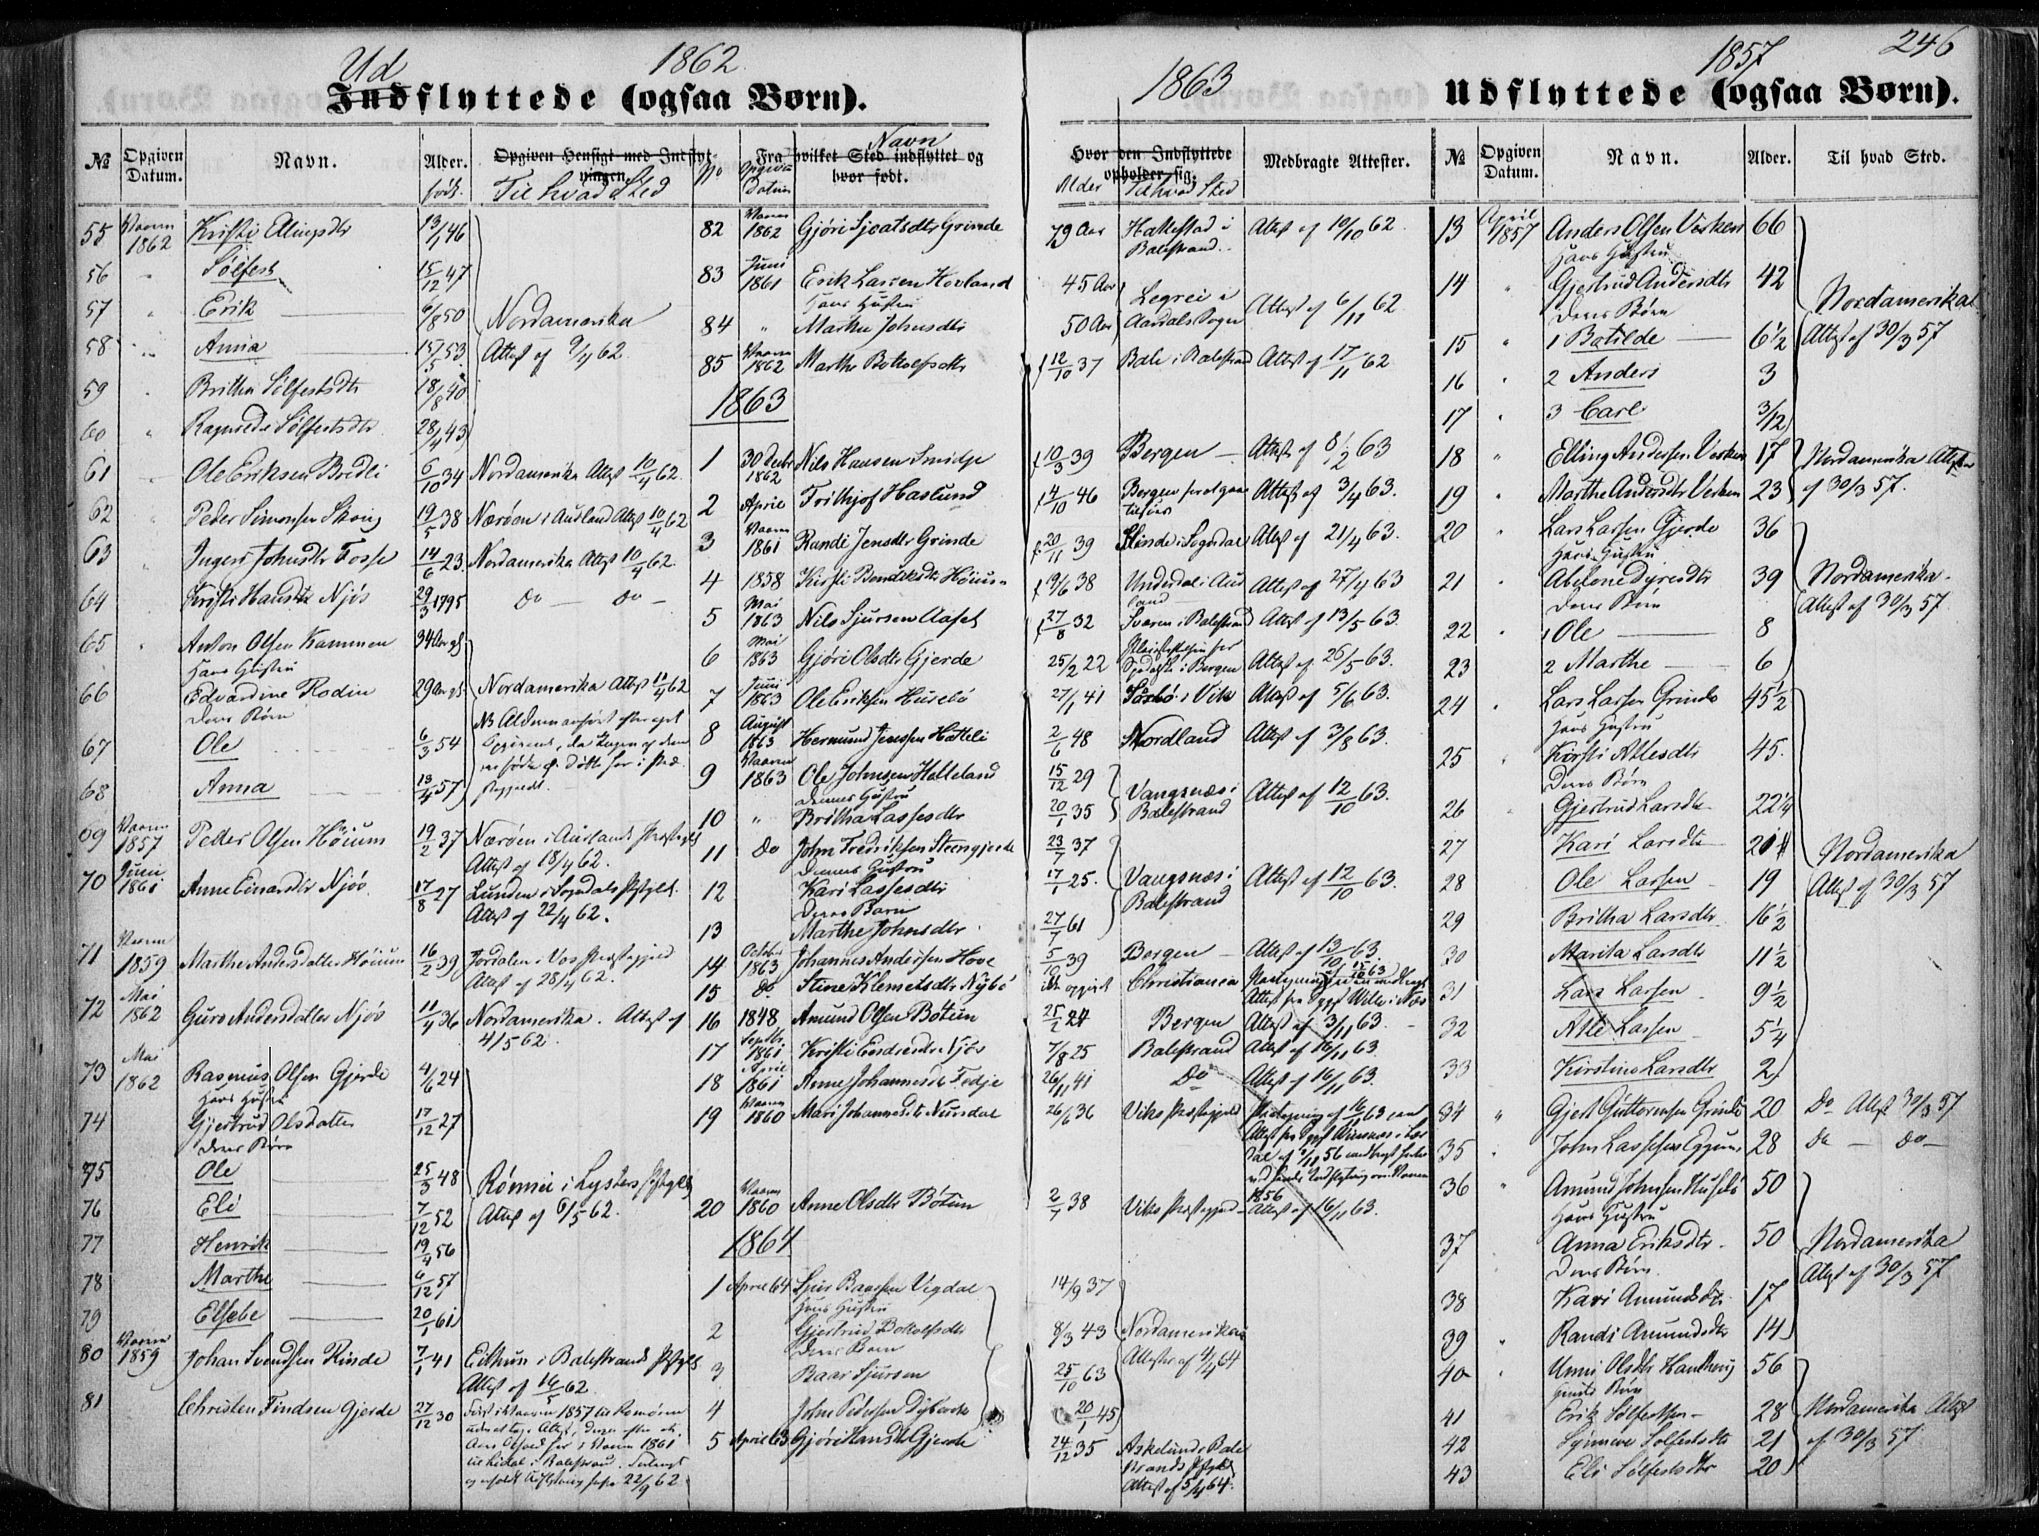 Ud 1862
Indflyttede (ogsaa Børn).
№ Opgiven Datum. Navn. Alder. født. Opgiven Hensigt med Indflytningen. Til hvad Sted
55 Vaaren 1862 Kristi Ellingsdtr 13/1 46
56 " Sølfest 15/12 47
57 " Erik 6/8 50 Nordamerika
58 " Anna 15/5 53 Attest af 9/4 62.
59 " Britha Sølfestsdtr 18/8 40
60 " Ragnilde Sølfestsdtr 28/4 43
61 " Ole Eriksen Bredli 6/10 34 Nordamerika Attest 10/4 62.
62 " Peder Simonsen 19/5 38 Nærøen i Aurland Attest 10/4 62
63 " Inger Johnsdtr Fosse 14/6 23. Nordamerika Attest 10/4 62.
64 Kristi Hansdtr Njøs 29/3 1795 Do — Do —
65 " Anton Olsen Kammen 34 Aar gl
Hans Hustru
66 Edvardine Rodin 29 Aar gl. Nordamerika Attest 11/4 62
Deres Børn
67 Ole 6/3 54
68 Anna 13/4 57
69 Vaaren 1857 Peder Olsen Høium 19/2 37 Nærøen i Aurlands Præstegjeld
Attest af 18/4 62.
70 Juni 1861 Anne Einardtr Njøs 17/8 27 Lunden i Sogndals Pstgld.
Attest af 22/4 62.
71 Vaaren 1859 Marthe Andersdatter Høium 16/2 39 Jordalen i Vos Præstegjeld
Attest af 28/4 62.
72 Mai 1862 Guro Andersdatter Njøs 11/4 36 Nordamerika. Attest af
4/5 62.
73 Mai 1862 Rasmus Olsen Gjerde 4/6 24
Hans Hustru
74 Gjertrud Olsdatter 17/12 27
Deres Børn
75 Ole 25/3 48 Rønnei i Lysters Pstgld
76 Eli 7/12 52 Attest af 6/5 62.
77 Henrik 19/4 56
78 Marthe 6/12 57
79 Elsebe 20/1 61
80 Vaaren 1859 Johan Svendsen Rinde 7/1 41 Eithun i Balestrands Pstgld
Attest af 16/5 62.
81 Christen Findsen Gjerde 27/12 30

Fra hvilket Sted indflyttet og hvor født.
No Opgiven Datum Navn
82 Vaaren 1862 Gjøri Sjeatsdtr Grinde
83 Juni 1861 Erik Larsen Hovland
Hans Hustru
84 " Martha Johnsdtr
85 Vaaren 1862 Marthe Botolfsdtr
1863
1 30 Decbr 1862 Nils Hansen Smidje
2 April Frithjof Haslund
3 Vaaren 1861 Randi Jensdtr Grinde
4 1858 Kirsti Bendiksdtr Høium
5 Mai 1863 Nils Sjursen Aafet
6 Mai 1863 Gjøri Olsdtr Gjerde
7 Juni 1863 Ole Eriksen Husebø
8 August 1863 Hermund Jenssen Hatteli
9 Vaaren 1863 Ole Johnsen Helleland
Dennes Hustru
10 " Britha Lassesdtr
11 Do John Fredriksen Steengjerde
Dennes Hustru
12 Kari Lassesdtr
Deres Barn
13 Marthe Johnsdtr.
14 October 1863 Johannes Andersen Hove
15 Do Stine Klemetsdtr Nybø
16 1848 Amund Olsen Bøtun
17 Septbr 1861 Kristi Endresdtr Njøs
18 April 1861 Anne Johannesdtr Fedje
19 Vaaren 1860 Mari Johannesdtr Nundal
20 Vaaren 1860 Anne Olsdtr Bøtun
1864
1 April 64 Sjur Baarsen Vigdal
Hans Hustru
2 Gjertrud Botolfsdtr
Deres Barn
3 Baar Sjursen
4 John Pedersen
5 April 63 Gjøri Hansdtr Gjerde

1863
Hvor den Indflyttede opholder sig. Medbragte Attester.
Alder Til hvad Sted
79 Aar Hattestad i Balestrand. Attest af 10/10 62.
45 Aar Legrei i
50 Aar Aardals Sogn Attest af 6/11 62
f 12/10 37 Bale i Balestrand Attest af 17/11 62
f 10/3 39 Bergen — Attest af 8/2 63
f 4/10 46 Bergen Attest af 3/4 63.
f. 20/11 39 Slinde i Sogndal Attest af 21/4 63.
f 9/6 38 Underdal i Aurland Attest af 27/4 63
f 27/8 32 Sværen i Balestrand Attest af 13/5 63.
25/2 22 Pleiestiftelsen for Spedalske i Bergen Attest af 26/5 63.
27/1 41 i Vik Attest af 5/6 63.
2/6 48 Nordland Attest af 3/8 63.
15/12 29 Vangsnæs i
20/1 35 Balestrand Attest af 12/10 63.
23/7 37
17/1 25. Vangsnæs i Balestrand Attest af 12/10 63.
27/7 61
5/10 39 Bergen — Attest af 13/10 63.
ikke opgivet Christiania
25/2 24 Bergen Attest af 3/11 63.
7/8 25 Balestrand Attest af 16/11 63.
26/11 41 Do Attest af 16/11 63.
26/6 36 Viks Præstegjeld
2/7 38 Viks Præstegjeld — Attest af 16/11 63.
14/9 37
8/3 43 Nordamerika
25/10 63 Attester af 4/4 64
20/1 45
24/12 35 Askelund i Balestrands Pstgld
Attest af 5/4 64.

1857 246
Udflyttede (ogsaa Børn).
№ Opgiven Datum. Navn. Alder. Til hvad Sted.
13 April 1857 Anders Olsen Verken 66
Hans Hustru
14 " Gjertrud Andersdtr 42 Nordamerika
Deres Børn
15 " 1 Batilde — 6½ Attest af 30/3 57
16 " 2 Anders 3
17 " 3 Carl 3/12
18 " Elling Andersen Verken 17 Nordamerika Attester
19 " Marthe Andersdtr Verken 23 af 30/3 57.
20 " Lars Larsen Gjerde 36
Hans Hustru
21 " Abelone Dyresdtr 39 Nordamerika.
Deres Børn Attest af 30/3 57.
22 " 1 Ole — 8
23 2 Marthe — 6
24 " Lars Larsen Grinde 45½
Hans Hustru
25 " Kirsti Atlesdtr 45.
Deres Børn
26 " Gjertrud Larsdtr 22¼
27 Kari Larsdtr 20 Nordamerika
28 Ole Larsen 19 Attest af 30/3 57
29 Britha Larsdtr 16½
30 Marita Larsdtr 11½
31 Lars Larsen 9½
32 Atle Larsen 5¼
33 Kirstine Larsdtr 2
34 " Gjert Guttormsen Grinde 20 Do Attest 30/3 57
35 " John Lassesen Eggum 28 Do — Do —
36 " Amund Johnsen Husebø 50
Hans Hustru
37 " Anna Eriksdtr. 50 Nordamerika
Deres Børn. Attest af 30/3 57
38 Kari Amundsdtr 17
39 " Randi Amundsdtr 14
40 " Unni Olsdtr 56
Hendes Børn
41 Erik Sølfestsen 28 Nordamerika Attest
42 Synneve Sølfestsdtr 21 af 30/3 57.
43 Eli Sølfestsdtr 20